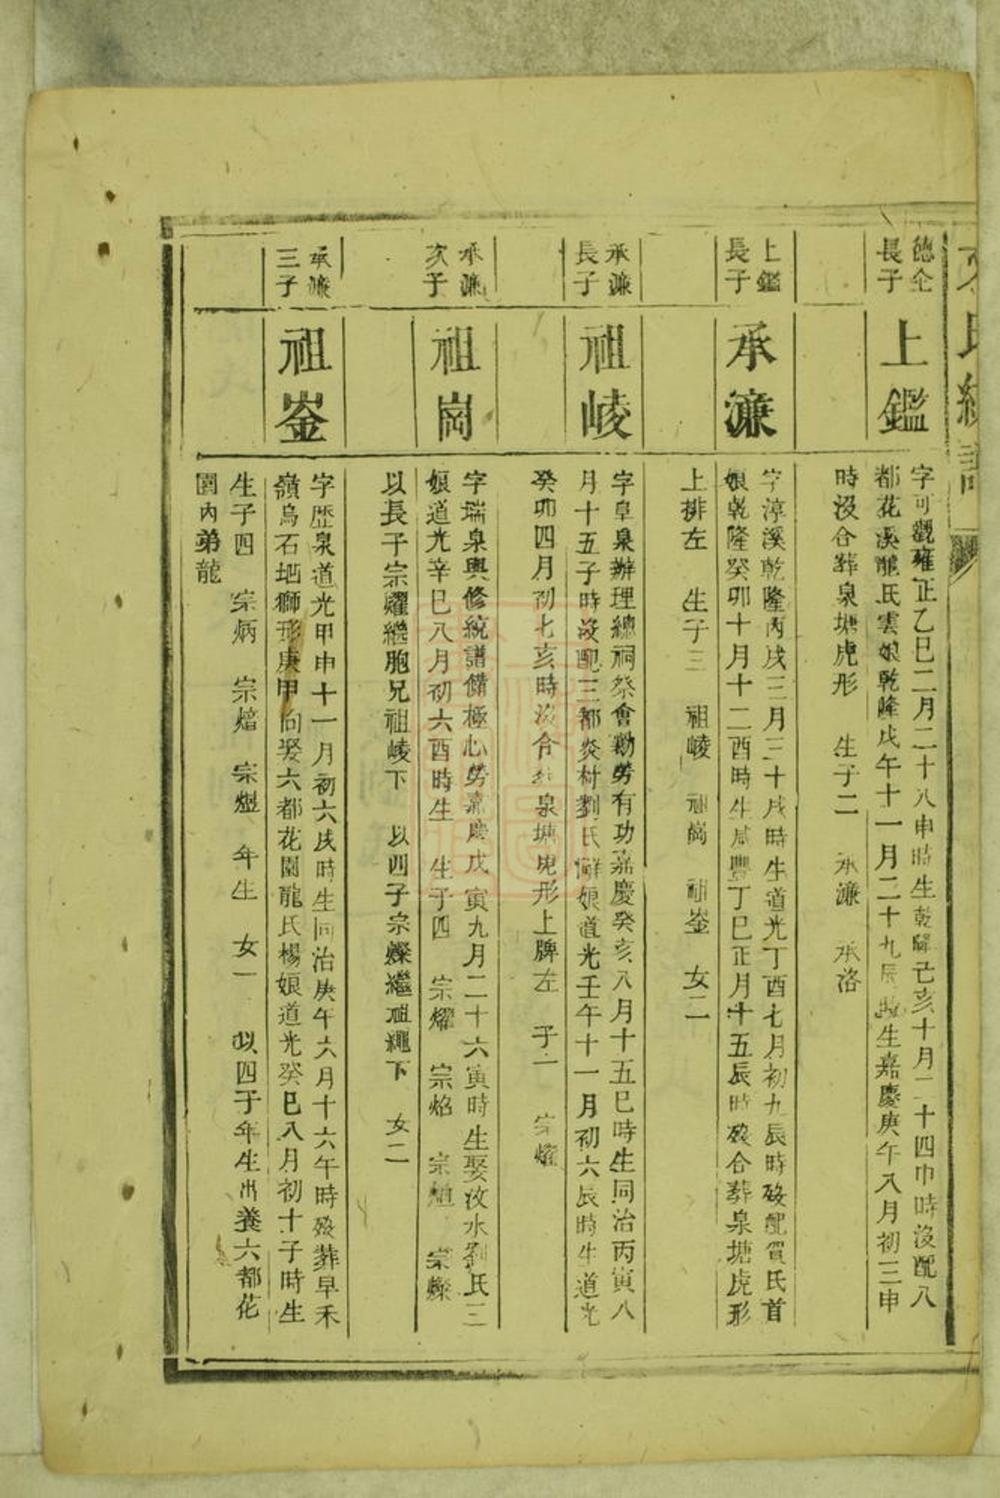 氏統譜
德全
長子
上鑑
字可觀雍正乙巳二月二十八申時生乾隆己亥十月二十四巾時沒配八
都花溪龍氏雲娘乾隆戊午十一月二十九辰時生嘉慶庚午八月初三申
時沒合葬泉塘虎形 生子二 承濂 承洛
上鑑
長子
承濂
字淳溪乾隆丙戌三月三十戌時生道光丁酉七月初九辰時歿配賀氏首
娘乾隆癸卯十月十二酉時生咸豐丁巳正月十五辰時歿合葬泉塘虎形
上排左 生子三 祖崚 祖崗 祖崟 女二
承濂
長子
祖崚
字阜泉辦理總祠祭會勤勞有功嘉慶癸亥八月十五巳時生同治丙寅八
月十五子時沒配三都炎村劉氏鮮娘道光壬午十一月初六辰時生道光
癸卯四月初七亥時沒合葬泉塘虎形上牌左 子一 宗燿
承濂
次子
祖崗
字瑞泉與修統譜備極心勞嘉慶戊寅九月二十六寅時生娶汶水劉氏三
娘道光辛巳八月初六酉時生 生子四 宗燿 宗焰 宗煊 宗爍
以長子宗燿繼胞兄祖崚下 以四子宗爍繼祖繩下 女二
承濂
三子
祖崟
字歷泉道光甲申十一月初六戌時生同治庚午六月十六午時歿葬早禾
嶺烏石坵獅形庚甲向娶六都花園龍氏楊娘道光癸巳八月初十子時生
生子四 宗炳 宗熖 宗煜 年生 女一 以四子年生出養六都花
園內弟龍